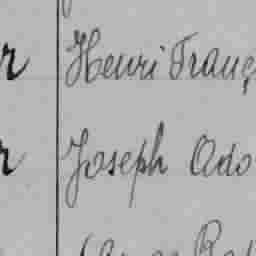 r Henri Franç
r Joseph Ado